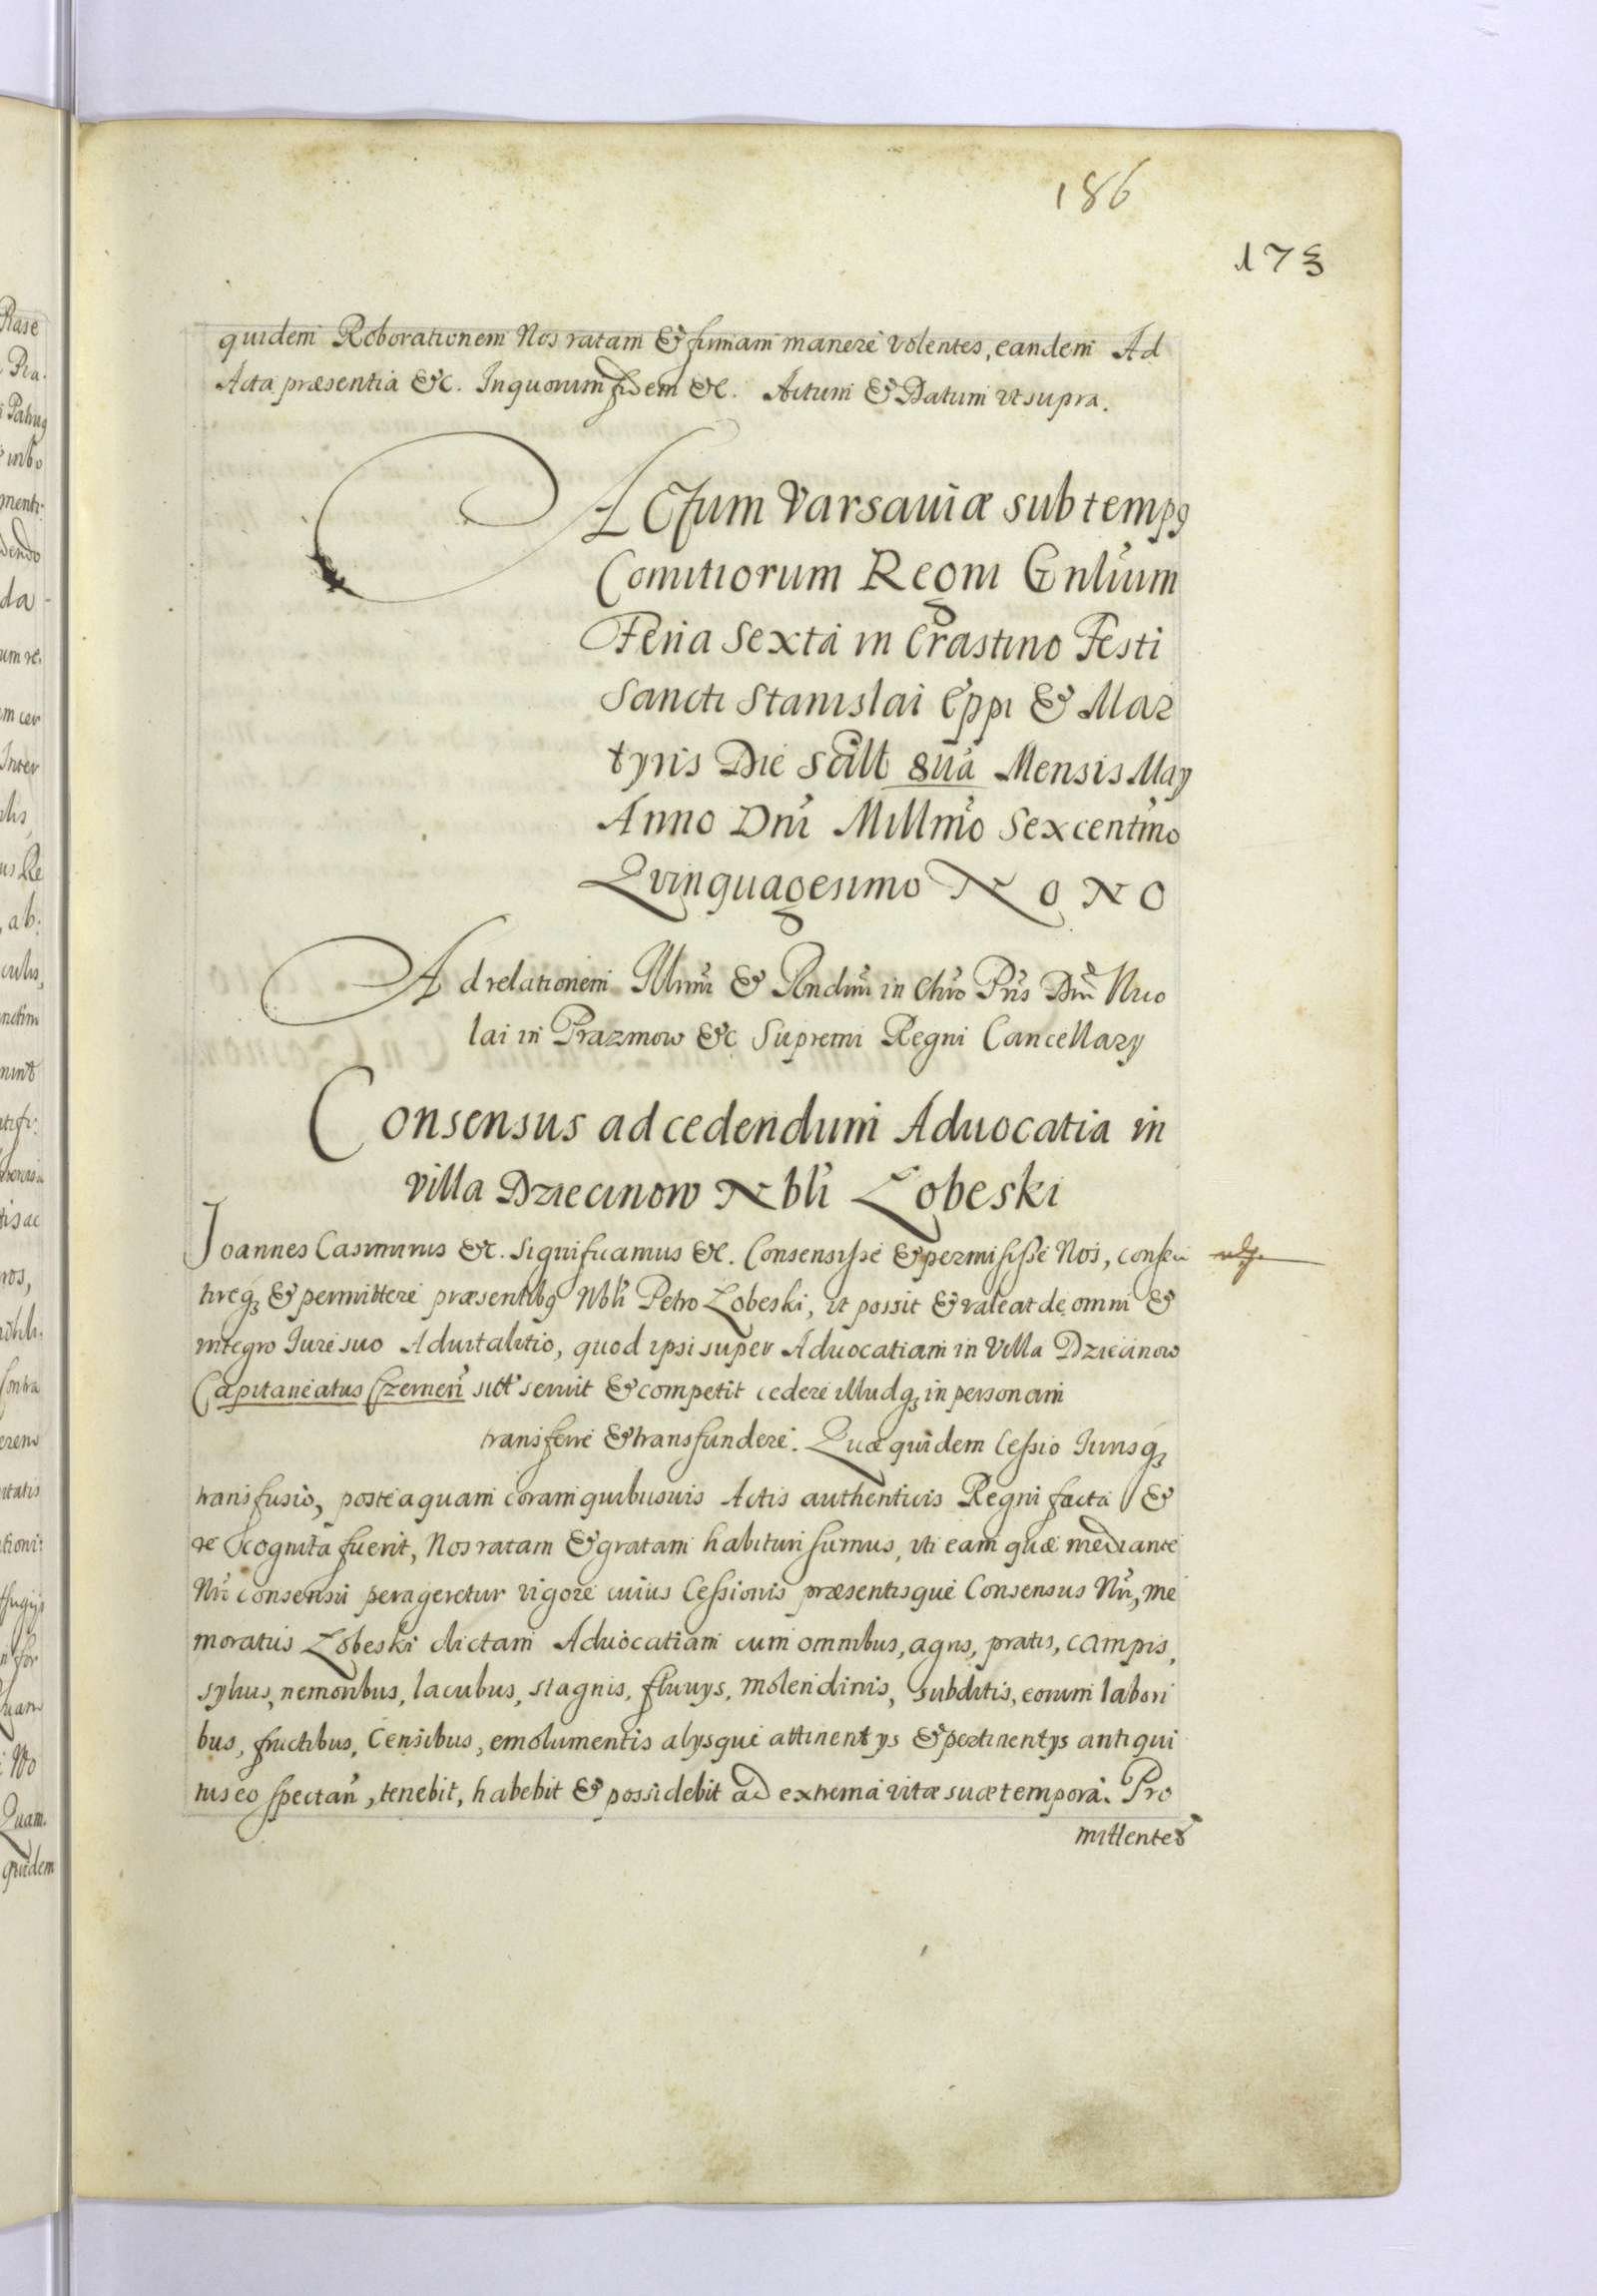 186
173
quidem Roborationem Nos ratam & firmam manere volentes, eandem Ad
Acta præsentia &c. In quorum fidem &c. Actum & Datum ut supra.
ACtum Varsaviæ sub tempq
Comitiorum Regni Gnlium
Feria Sexta in Crastino Festi
Sancti Stanislai Eppi & Mar
tyris Die scilt 8ua Mensis May
Anno Dni Millmo Sexcentmo
Qvinquagesimo NONO
Ad relationem Illrmi & Rndmi in Chro Pris Dni Nico
lai in Prazmow &c Supremi Regni Cancellary
Consensus ad cedendum Aduocatia in
villa Dziecinow Nbli Lobeski
Joannes Casimirus &c. Significamus &c. Consensisse & permisisse Nos, consen
tireq & permittere præsentibq Nbli Petro Lobeski, ut possit & valeat de omni &
integro Jure suo Aduitalitio, quod ipsi super Aduocatiam in Villa Dziecinow
Capitaneatus Czernen sitt seruit & competit cedere illudq in personam
transferre & transfundere. Quæ quidem Cessio Jurisq
transfusio, posteaquam coram quibusuis Actis authenticis Regni facta &
recognita fuerit, Nos ratam & gratam habituri sumus, uti eam quæ mediante
Nri consensu perageretur vigore cuius Cessionis præsentisque Consensus Nri, me
moratus Lobeski dictam Aduocatiam cum omnibus, agris, pratis, campis,
syluis, nemoribus, lacubus, stagnis, fluuys, molendinis, subditis, eorum labori
bus, fructibus, Censibus, emolumentis alysque attinentys & pertinentys antiqui
tus eo spectan, tenebit, habebit & possidebit ad extrema vitæ suæ tempora. Pro
mittentes